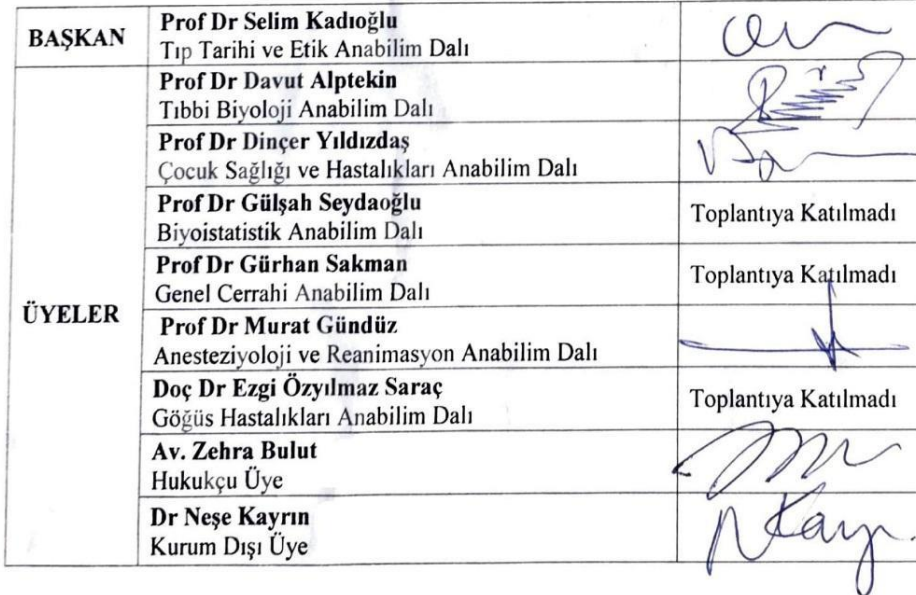 BAŞKAN
Prof Dr Selim Kadıoğlu
Tıp Tarihi ve Etik Anabilim Dalı
ÜYELER
Prof Dr Davut Alptekin
Tıbbi Biyoloji Anabilim Dalı
Prof Dr Dinçer Yıldızdaş
Çocuk Sağlığı ve Hastalıkları Anabilim Dalı
Prof Dr Gülşah Seydaoğlu
Biyoistatistik Anabilim Dalı
Toplantıya Katılmadı
Prof Dr Gürhan Sakman
Genel Cerrahi Anabilim Dalı
Toplantıya Katılmadı
Prof Dr Murat Gündüz
Anesteziyoloji ve Reanimasyon Anabilim Dalı
Doç Dr Ezgi Özyılmaz Saraç
Göğüs Hastalıkları Anabilim Dalı
Toplantıya Katılmadı
Av. Zehra Bulut
Hukukçu Üye
Dr Neşe Kayrın
Kurum Dışı Üye